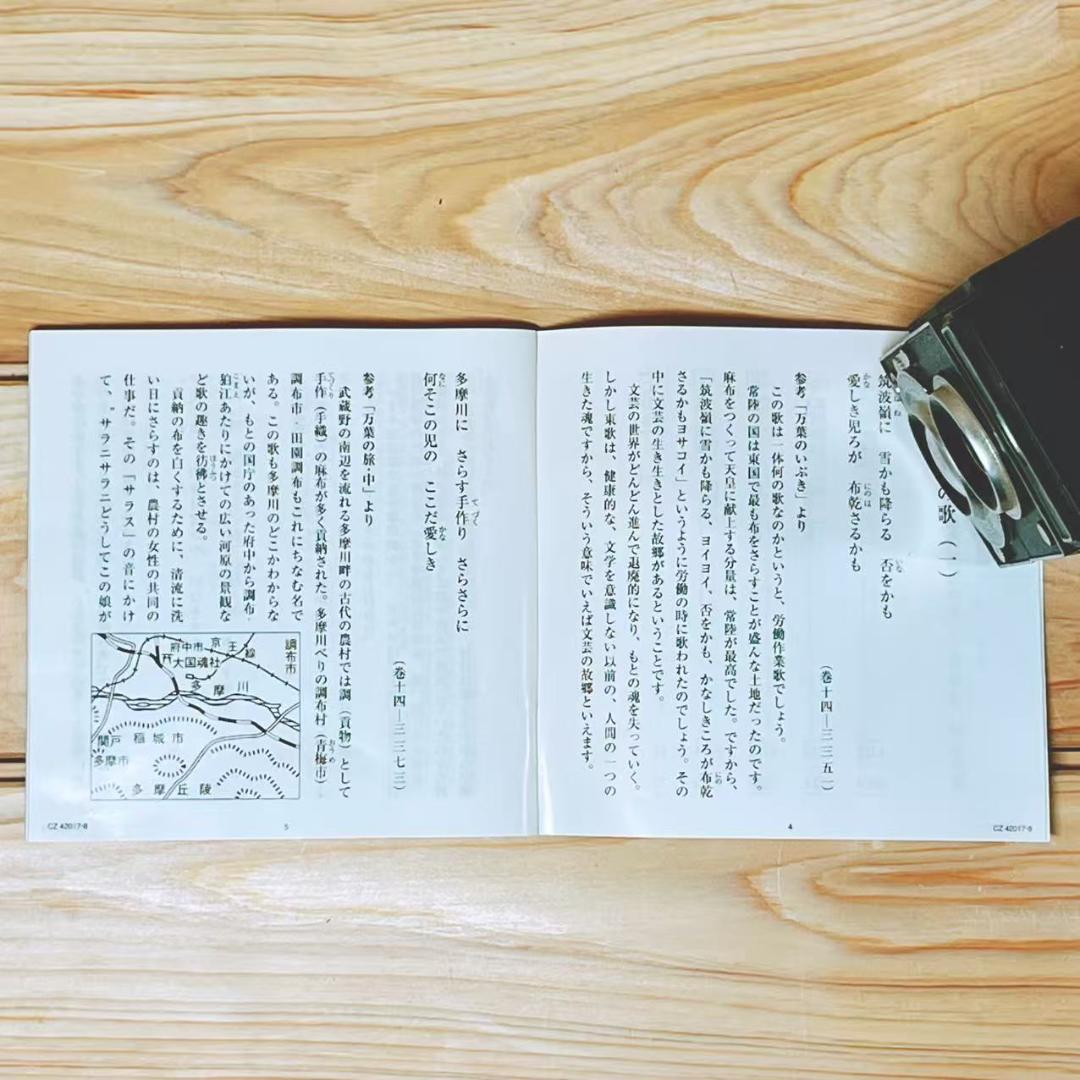 の歌（一）
筑波嶺に　雪かも降らる　否をかも
愛しき児ろが　布乾さるかも
（巻十四―三三五一）
参考「万葉のいぶき」より
この歌は一体何の歌なのかというと、労働作業歌でしょう。
常陸の国は東国で最も布をさらすことが盛んな土地だったのです。
麻布をつくって天皇に献上する分量は、常陸が最高でした。ですから、
「筑波嶺に雪かも降らる、ヨイヨイ、否をかも、かなしきころが布乾
さるかもヨサコイ」というように労働の時に歌われたのでしょう。その
中に文芸の生き生きとした故郷があるということです。
文芸の世界がどんどん進んで退廃的になり、もとの魂を失っていく。
しかし東歌は、健康的な、文学を意識しない以前の、人間の一つの
生きた魂ですから、そういう意味でいえば文芸の故郷といえます。
4
CZ 42017-8
多摩川に　さらす手作り　さらさらに
何そこの児の　ここだ愛しき
（巻十四―三三七三）
参考「万葉の旅・中」より
武蔵野の南辺を流れる多摩川畔の古代の農村では調（貢物）として
手作（手織）の麻布が多く貢納された。多摩川べりの調布村（青梅市）
調布市・田園調布もこれにちなむ名で
ある。この歌も多摩川のどこかわからな
いが、もとの国庁のあった府中から調布・
狛江あたりにかけての広い河原の景観な
ど歌の趣きを彷彿とさせる。
貢納の布を白くするために、清流に洗
い日にさらすのは、農村の女性の共同の
仕事だ。その「サラス」の音にかけ
て、〝サラニサラニどうしてこの娘が
調布市
京王線
府中市
大国魂社
多摩川
稲城市
関戸
多摩市
多摩丘陵
5
CZ 42017-8